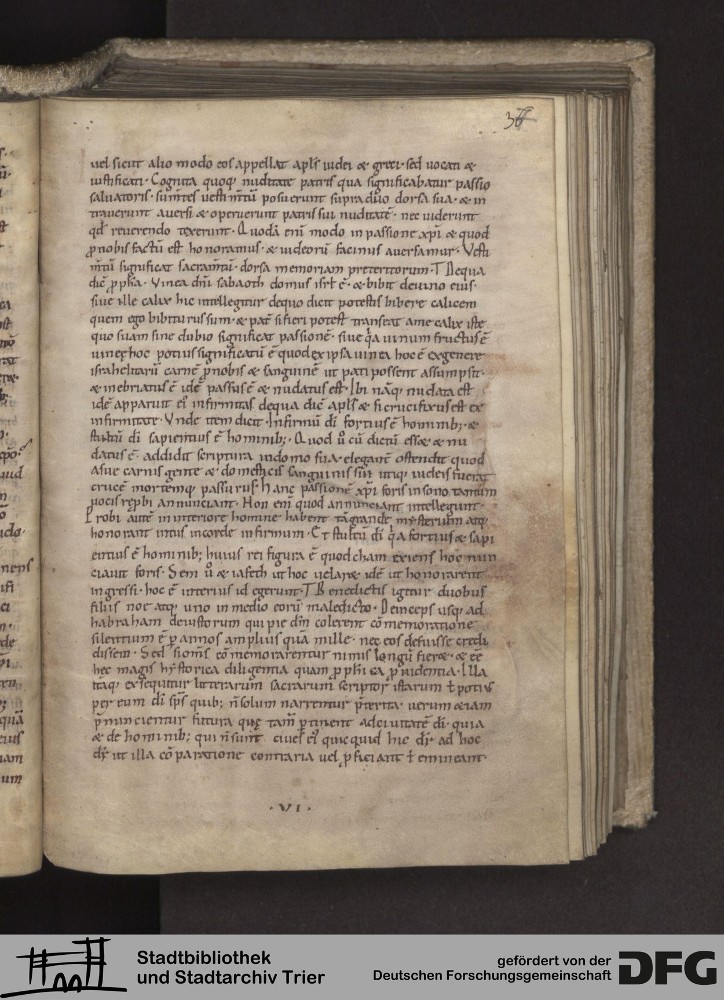 36
uel sicut alio modo eos appellat apl̄s iudei & greci· sed uocati &
iustificati· Cognita quoq; nuditate patris qua significabatur passio
saluatoris· sum̄tes uestim̄tū posuerunt supra duo dorsa sua· & in
trauerunt auersi & operuerunt patris sui nuditatē· nec uiderunt
qd̄ reuerendo texerunt· Quodā eni modo in passione xpī & quod
ꝓ nobis factū est honoramus· & iudeorū facinus auersamur· Vesti
m̄tū significat sacram̄tū· dorsa memoriam preteritorum·
dic̄ ꝓph̄a· Vinea dn̄i sabaoth domus isrł ē· & bibit deuino eius·
siue ille calix hic intellegitur dequo dicit potestis bibere calicem
quem ego bibiturus sum· & pat̄ si fieri potest transeat ame calix iste
quo suam sine dubio significat passionē· siue q̄a uinum fructus ē
uineę hoc potius significatū ē quod ex ipsa uinea hoc ē exgenere
israhelitarū carnē ꝓ nobis & sanguinē ut pati possent assumpsit·
& inebriatus ē idē passus ē & nudatus est· Ibi nāq; nudata est
idē apparuit ei infirmitas dequa dic̄ apl̄s & si crucifixus est ex
infirmitate· Vnde item dicit· Infirmū di fortius ē hominib; &
stultū di sapientius ē hominib;· Quod ū cū dictū esset & nu
datus ē· addidit scriptura indomo sua· eleganter ostendit quod
asue carnis gente & domesticis sanguinis sui utiq; iudeis fuerat
crucē mortemq; passurus· Hanc passionē xpī foris insono tantum
uocis reꝓbi annunciant· Non eni quod annunciant intellegunt·
Probi autē in interiore homine habent tā grande mysterium atq;
honorant intus incorde infirmum· Et stultū di q̄a fortius & sapi
entius ē hominib; huius rei figura ē quod cham exiens hoc nun
ciauit foris· Sem ū & iafeth ut hoc uelarēt idē ut honorarent
ingressi· hoc ē interius id egerunt· Benedictis igitur duobus
filiis noe atq; uno in medio eorū maledicto· Deinceps usq; ad
habraham deiustorum qui pie dm̄ colerent cōmemoratione
silentium ē ꝑ annos amplius quā mille· nec eos defuisse credi
dissem· Sed si oms̄ cōmemorarentur nimis longū fieret· & eēt
hęc magis hystorica diligentia quam ꝓph&ica ꝓuidentia· Illa
itaq; exsequitur litterarum sacrarum scriptor istarum ł potius
per eum di sp̄s quib; n̄ solum narrentur p̄terita· uerum &iam
p̄nuncientur futura quę tam̄ ꝑtinent adciuitatē di· quia
& de hominib; qui n̄ sunt ciues ei quicquid hic dr̄· ad hoc
dr̄ ut illa cōparatione contraria uel ꝓficiant ł emineant·
·VI·
Stadtbibliothek
und Stadtarchiv Trier
gefördert von der
Deutschen Forschungsgemeinschaft
DFG